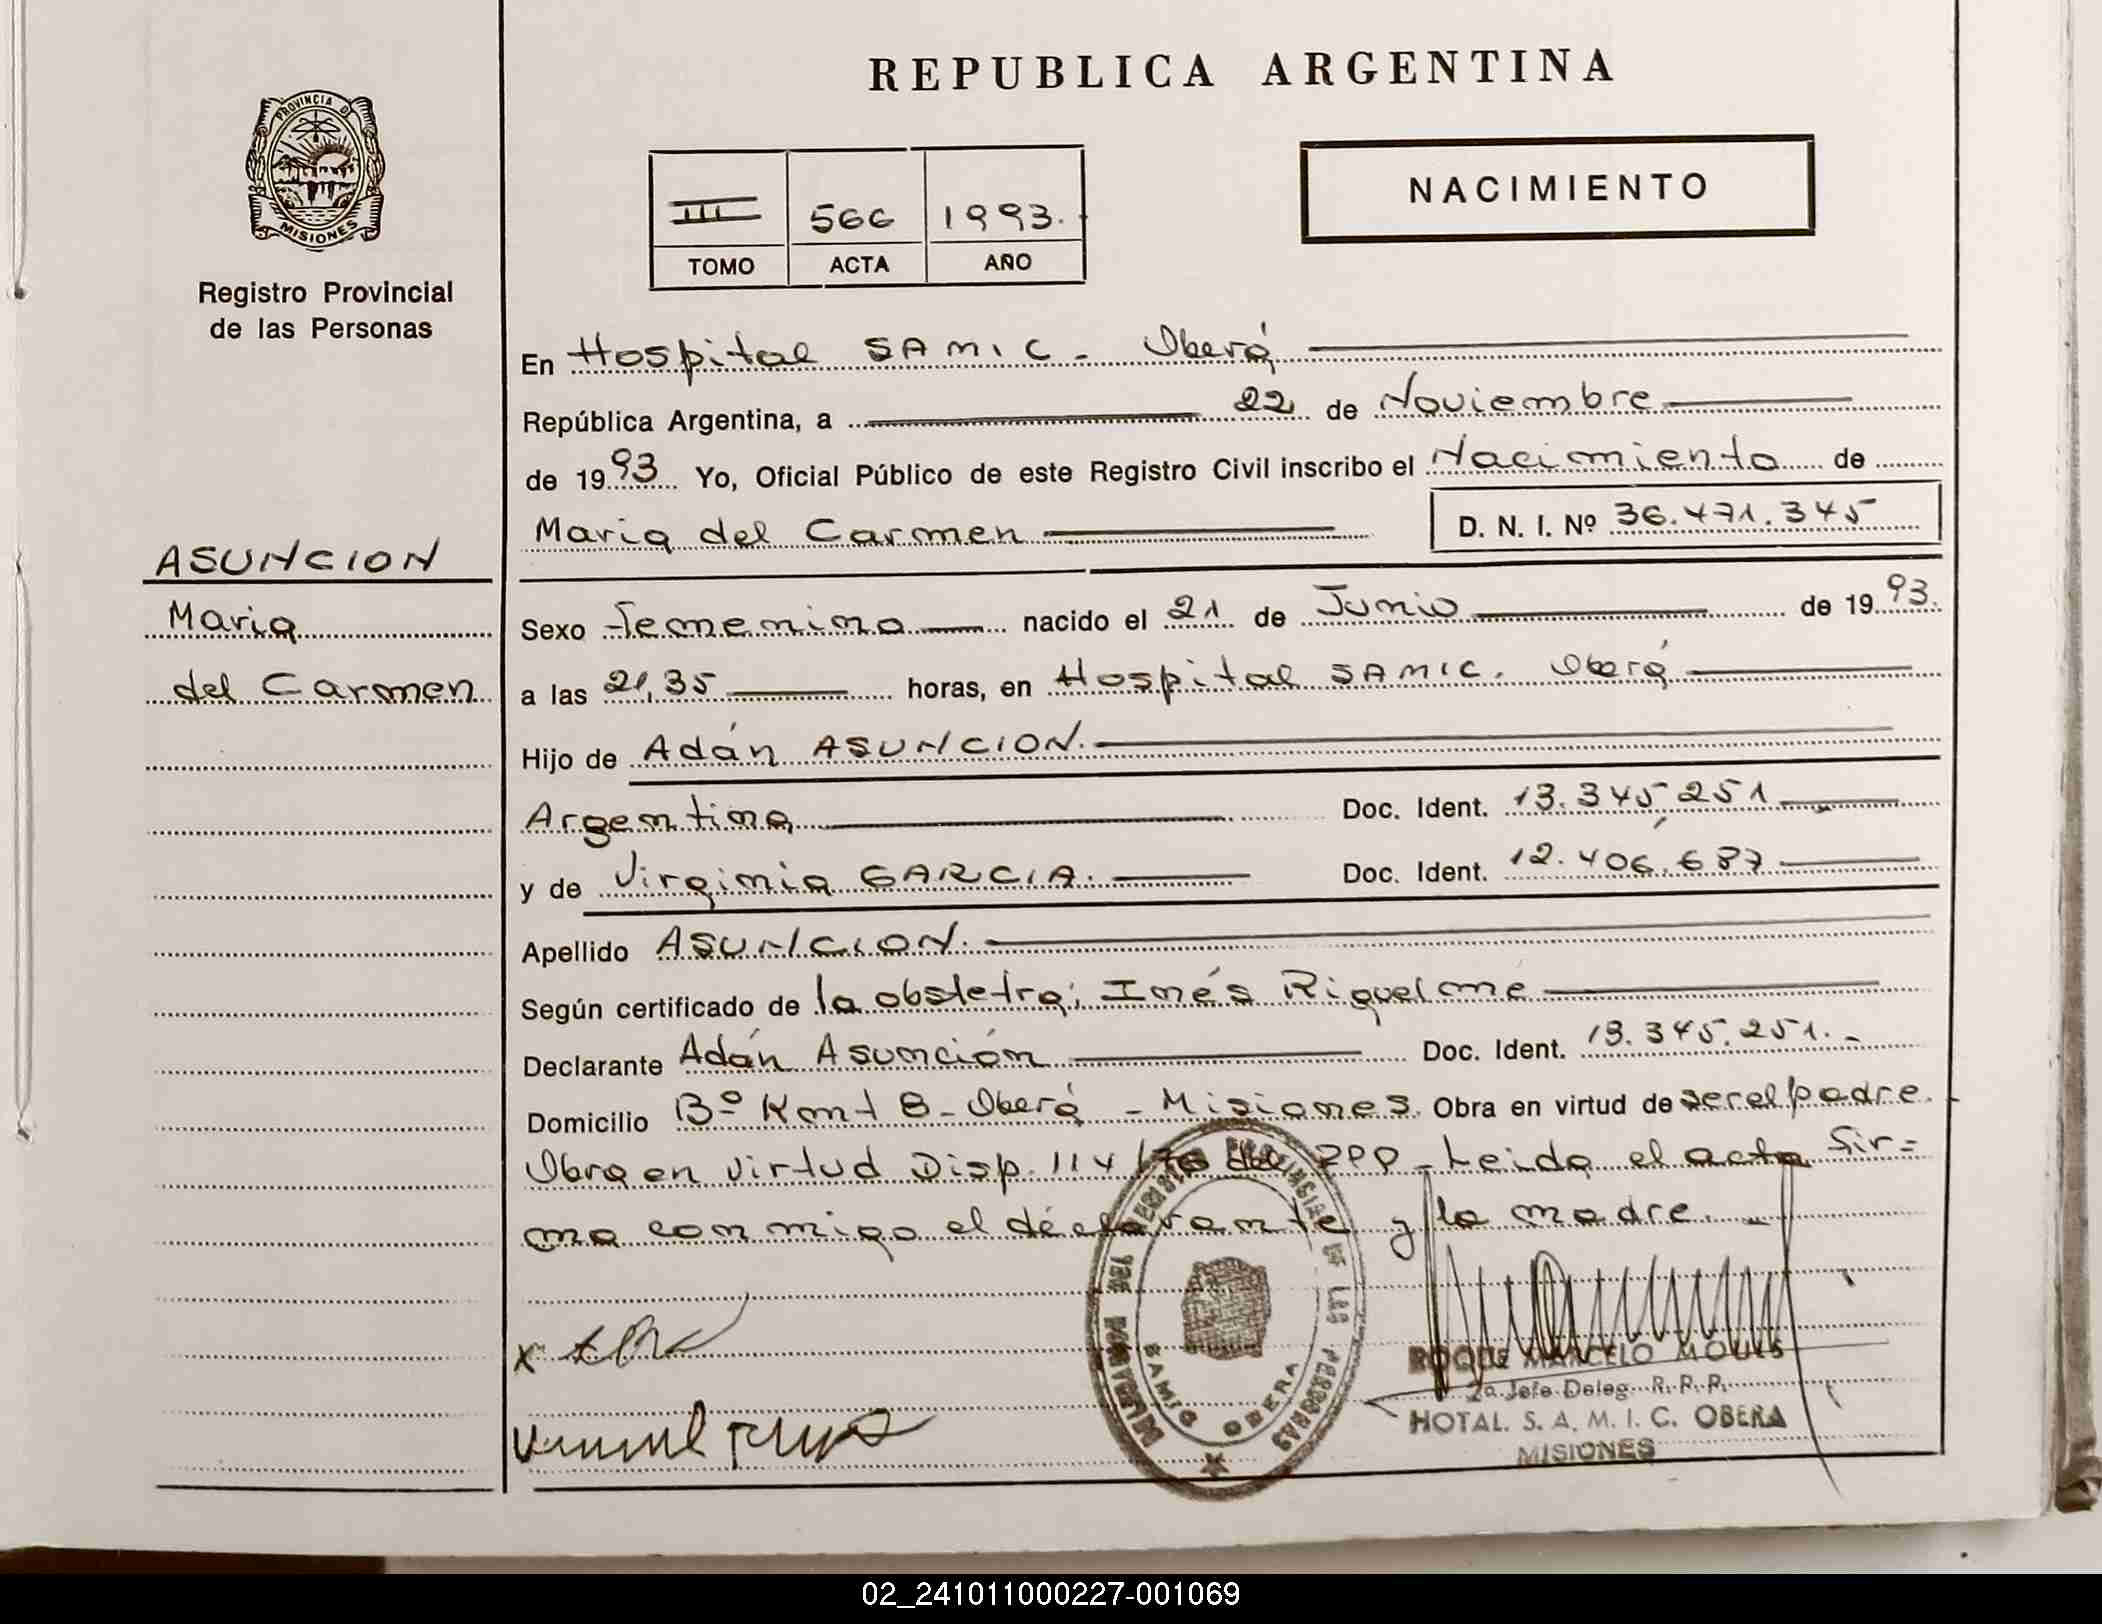 REPUBLICA ARGENTINA
PROVINCIA D
MISIONES
Registro Provincial
de las Personas
III 566 1993.
TOMO ACTA AÑO
NACIMIENTO
En Hospital SAMIC - Oberá
República Argentina, a 22 de Noviembre
de 1993 Yo, Oficial Público de este Registro Civil inscribo el Nacimiento de
Maria del Carmen D. N. I. Nº 36.471.345
ASUNCION
Maria
del Carmen
Sexo Femenino nacido el 21 de Junio de 1993.
a las 21,35 horas, en Hospital SAMIC. Oberá
Hijo de Adán ASUNCION.
Argentina Doc. Ident. 13.345.251
y de Virginia GARCIA. Doc. Ident. 12.406.687
Apellido ASUNCION.
Según certificado de la obstetra; Inés Riquelme
Declarante Adán Asunción Doc. Ident. 13.345.251.-
Domicilio Bº Knnt 8 - Oberá - Misiones. Obra en virtud de ser el padre.
Obra en virtud Disp. 114/76 del RPP - Leida el acta fir=
ma conmigo el declarante y la madre. -
x
DE LAS PERSONAS
SAMIC OBERA
ROQUE MARCELO
2o Jefe Deleg. R. P. P.
HOTAL. S. A. M. I. C. OBERA
MISIONES
02_241011000227-001069